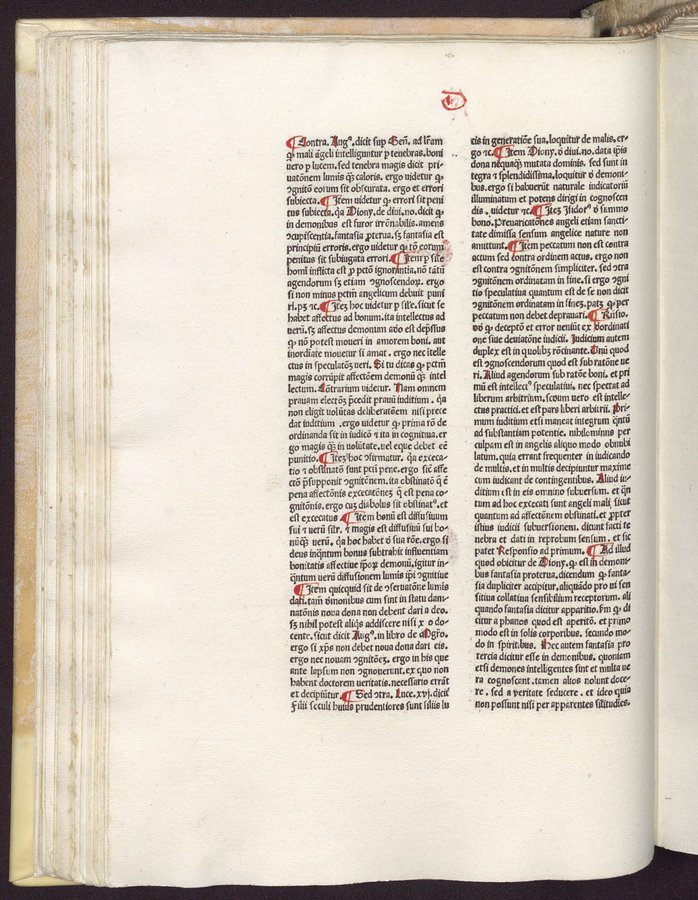 Contra. Augꝰ. dicit sup Geñ. ad lr̃am
ꝙ mali ãgeli intelliguntur ꝑ tenebras. boni
vero ꝑ lucem. sed tenebra magis dicit pri-
uatõnem lumis q̃ꝫ caloris. ergo videtur ꝙ
ꝯgnitõ eoꝝ sit obscurata. ergo et errori
subiecta. ¶ Item videtur ꝙ errori sit peni
tus subiecta. q̃a Diony. de diui. no. dicit ꝙ
in demonibus est furor irrõnabilis. amens
ꝯcupiscentia. fantasia ꝓterua. sꝫ fantasia est
principiũ erroris. ergo videtur ꝙ rõ eorum
penitus sit subiugata errori. ¶ Item ꝑ sile
homi inflicta est ꝓ pctõ ignorãtia. nõ tãtũ
agendorum sꝫ etiam ꝯgnoscendoꝝ. ergo
si non minus pctm̃ angelicum debuit puni
ri. pꝫ ꝛc. ¶ Iteꝫ hoc videtur ꝑ sile. sicut se
habet affectus ad bonum. ita intellectus ad
verũ. sꝫ affectus demonum adeo est dep̃ssus
ꝙ nõ potest moueri in amorem boni. aut
inordiate mouetur si amat. ergo nec itelle
ctus in speculatõꝫ veri. Si tu dicas ꝙ pctm̃
magis corrupit affectẽm demonũ q̃ꝫ intel
lectum. Cõtrarium videtur. Nam omnem
prauam electõꝫ p̃cedit prauũ iuditium. q̃a
non eligit volũtas deliberatõem nisi prece
dat iuditium. ergo videtur ꝙ prima rõ de
ordinanda sit in iudicõ ⁊ ita in cognitua. er
go magis q̃ꝫ in volũtate. vel eque debet cẽ
punitio. ¶ Iteꝫ hoc ꝯfirmatur. q̃a execa-
tio ⁊ obstinatõ sunt pctĩ pene. ergo sic̃ affe
ctõ p̃supponit ꝯgnitõnem. ita obstinatõ q̃ ẽ
pena affectõnis execatõneꝫ q̃ est pena co-
gnitõnis. ergo cuꝫ diabolus sit obstinatꝰ. et
est excecatus ¶ Item bonũ est diffusiuum
sui ⁊ verũ siłr. ⁊ magis est diffusiuũ sui bo-
nũq̃ꝫ verũ. q̃a hoc habet ð sua rõe. ergo si
deus inq̃ntum bonus subtrahit influentiam
bonitatis affectiue ip̃oꝝ demonũ. igitur in-
q̃ntum verũ diffusionem lumis ip̃i ꝯgnitiue
¶ Item quicquid sit de ꝯseruatõne lumis
dati. tam̃ ðmonibus cum sint in statu dam-
natõnis noua dona non debent dari a deo.
sꝫ nihil potest aliq̃s addiscere nisi x̃o do-
cente. sicut dicit Augꝰ. in libro de Mgr̃o.
ergo si xp̃s non debet noua dona dari eis.
ergo nec nouam ꝯgnitõeꝫ. ergo in his que
ante lapsum non ꝯgnouerunt. ex quo non
habent doctorem veritatis. necessario errãt
et decipiũtur. ¶ Sed ꝯtra. Luce. xvj. dicit̃
Filii seculi huius prudentiores sunt filiis lu
cis in generatiõe sua. loquitur de malis. er-
go ꝛc. ¶ Item Diony. ð diui. no. data ip̃is
dona neq̃aq̃ꝫ mutata dominis. sed sunt in
tegra ⁊ splendidissima. loquitur ð demoni-
bus. ergo si habuerũt naturale iudicatoriũ
illuminatum et potens dirigi in cognoscen
dis. videtur ꝛc. ¶ Iteꝫ Isidorꝰ ð summo
bono. Preuaricatões angeli etiam sancti-
tate dimissa sensum angelice nature non
amittunt. ¶ Item peccatum non est contra
actum sed contra ordinem actus. ergo non
est contra ꝯgnitõnem simpliciter. sed ꝯtra
ꝯgnitõnem ordinatam in fine. si ergo cgni
tio speculatiua quantum est de se non dicit
ꝯgnitõnem ordinatam in fineꝫ. patꝫ ꝙ per
peccatum non debet deprauari. ¶ Rñsio.
ðð ꝙ deceptõ et error veniũt ex ðordinati
one siue deuiatõne iudicii. Judicium autem
duplex est in quolibꝫ rõcinante. Vnũ quod
est ꝯgnoscendorum quod est sub ratõne ve
ri. Aliud agendorum sub ratõe boni. et pri
mũ est intellectꝰ speculatiui. nec spectat ad
liberum arbitrium. secum vero est intelle-
ctus practici. et est pars liberi arbitrii. Pri-
mum iuditium etsi maneat integrum q̃ntũ
ad substantiam potentie. nihilominus per
culpam est in angelis aliquo modo obnubi
latum. quia errant frequenter in iudicando
de multis. et in multis decipiuntur maxime
cum iudicant de contingentibus. Aliud iu-
ditium est in eis omnino subuersum. et q̃n
tum ad hoc excecati sunt angeli mali sicut
quantum ad affectõnem obstinati. et ꝓpter
istius iudicii subuersionem. dicunt̃ facti te
nebra et dati in reprobum sensum. et sic
patet Responsio ad primum. ¶ Ad illud
quod obicitur de Diony. ꝙ est in demoni-
bus fantasia proterua. dicendum ꝙ fanta-
sia dupliciter accipitur. aliquãdo pro vi sen
sitiua collatiua sensibilium receptorum. ali
quando fantasia dicitur apparitio. Fm ꝙ di
citur a phanos quod est aperitõ. et primo
modo est in solis corporibus. secundo mo-
do in spiritibus. Hec autem fantasia pro
tercia dicitur esse in demonibus. quoniam
etsi demones intelligentes sint et multa ve
ra cognoscent. tamen alios nolunt doce-
re. sed a veritate seducere. et ideo quia
non possunt nisi per apparentes similitudĩes.